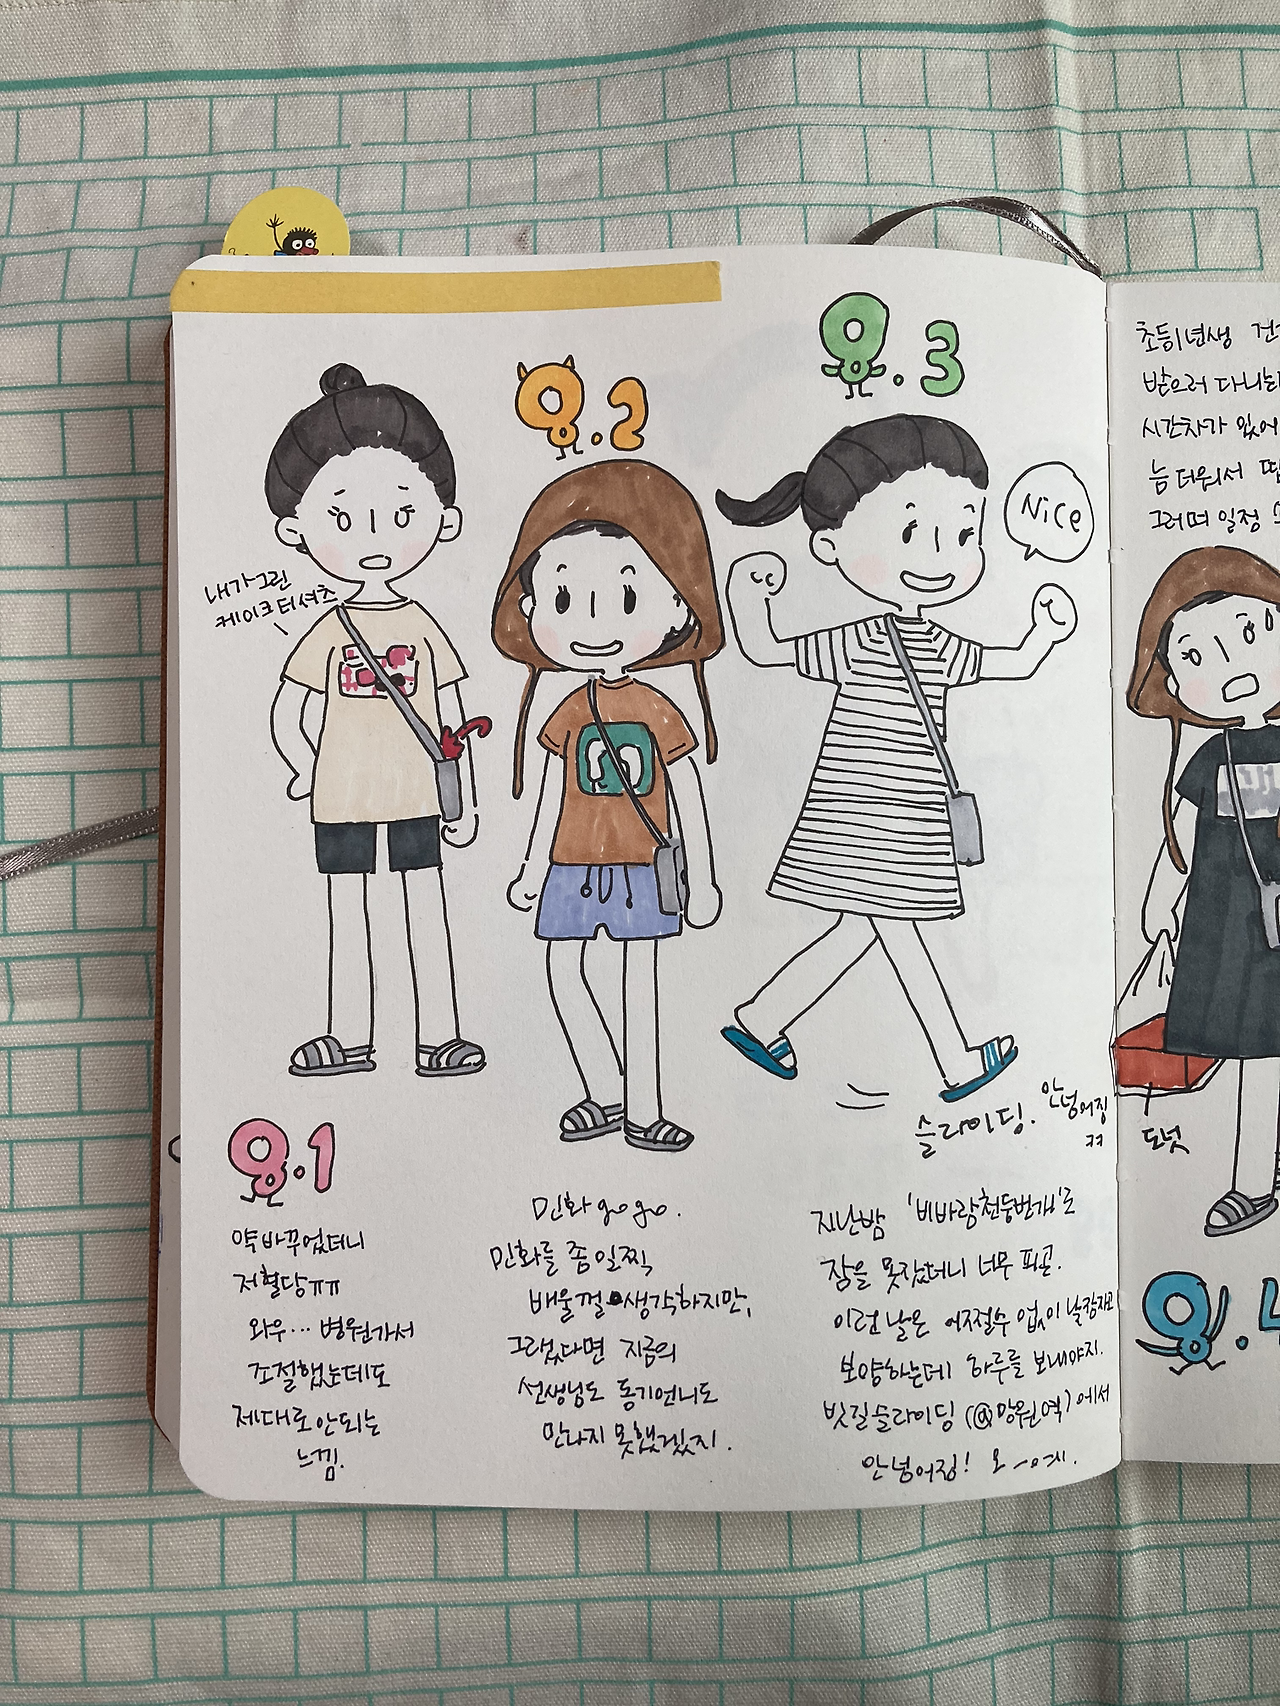 9.2
9.3
Nice
내가그린
케이크티셔츠
슬라이딩. 안넝어징
ㅋㅋ
9.1
약바꾸었더니
저혈당ㅠㅠ
와우... 병원가서
조절했는데도
제대로안되는
느낌.
민화gogo.
민화를 좀 일찍
배울껄 생각하지만,
그랬다면 지금의
선생님도 동기언니도
만나지 못했겠지.
지난밤 '비바람천둥번개'로
잠을 못잤더니 너무 피곤.
이런날은 어쩔수 없이 낮잠자고
보양하는데 하루를 보내야지.
빗길슬라이딩 (@망원역)에서
안넝어징! 오-예.
초등1년생
받으러 다니는
시간차가 있어
늠 더워서
그러며 일정
도넛
9.4